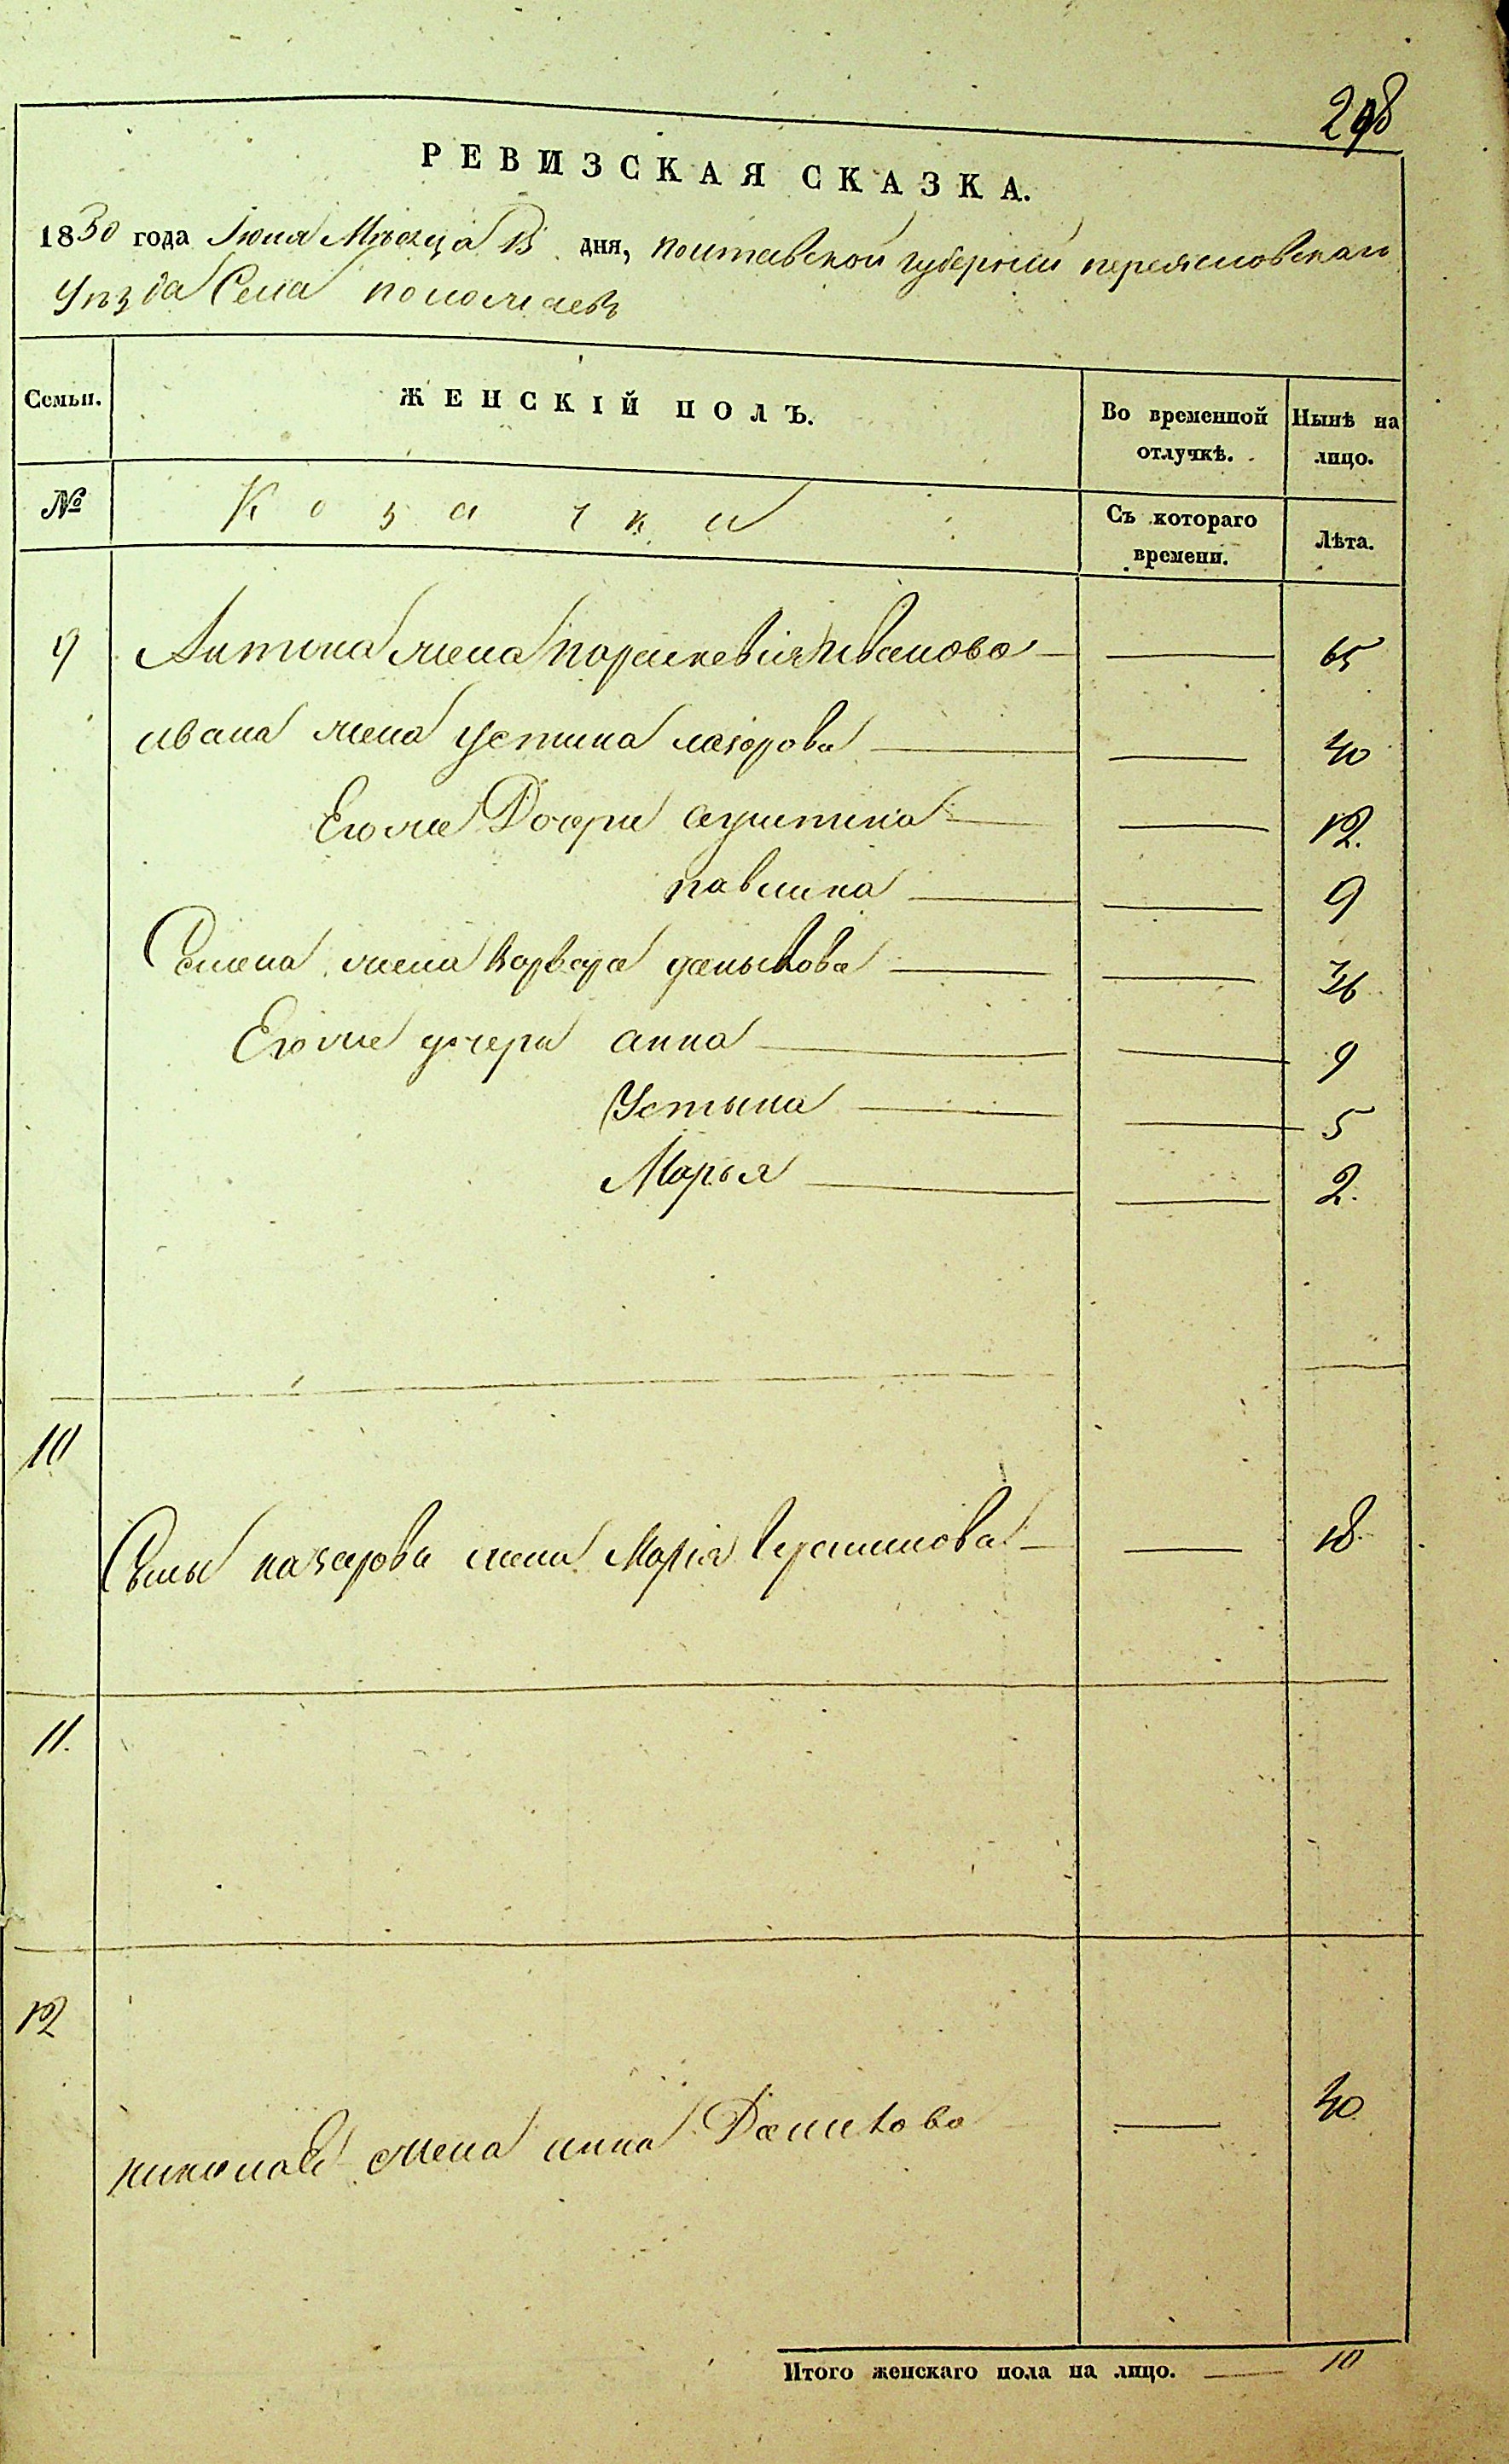 298
РЕВИЗСКАЯ СКАЗКА.
1830 года Іюня Мѣсяца дня, полтавской губернии переясловскаго
уѣзда Села
Семьи. ЖЕНСКІЙ ПОЛЪ. Во временной отлучкѣ. Нынѣ на лицо.
№ Козачки Съ котораго времени. Лѣта.
9 Антона жена Параскевия Иванова — 65
ивана жена Устина лазорова — 40
Его же Дочери — 12.
павлина — 9
Семена жена Варвара данылова — 36
Его же дочери анна — 9
Устына — 5
Марья — 2.
10
назарова жена Марія — 18
11.
12
николая жена анна Данилова — 40
Итого женскаго пола на лицо. — 10